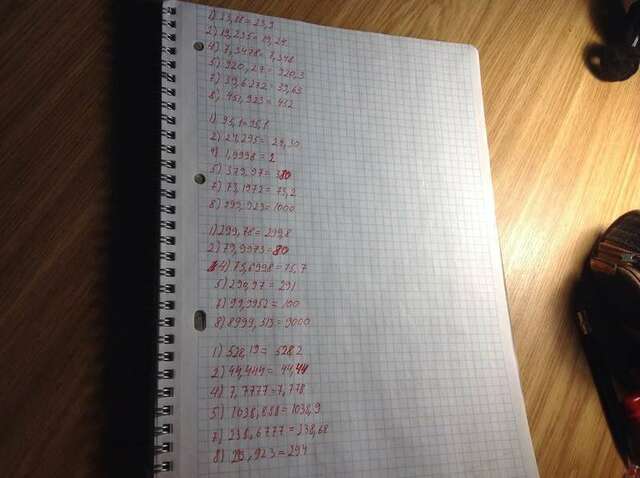 1) 23,18 = 23,2
2) 19,235 = 19,24
4) 7,3478 = 7,348
5) 920,27 = 920,3
7) 39,6272 = 39,63
8) 451,923 = 452
1) 95,1 = 95,1
2) 29,295 = 29,30
4) 1,9998 = 2
5) 379,97 = 380
7) 73,1972 = 73,2
8) 999,923 = 1000
1) 299,78 = 299,8
2) 79,9973 = 80
4) 75,6998 = 75,7
5) 290,97 = 291
7) 99,9952 = 100
8) 8999,513 = 9000
1) 528,19 = 528,2
2) 44,444 = 44,44
4) 7,7777 = 7,778
5) 1038,888 = 1038,9
7) 238,6777 = 238,68
8) ,923 = 294